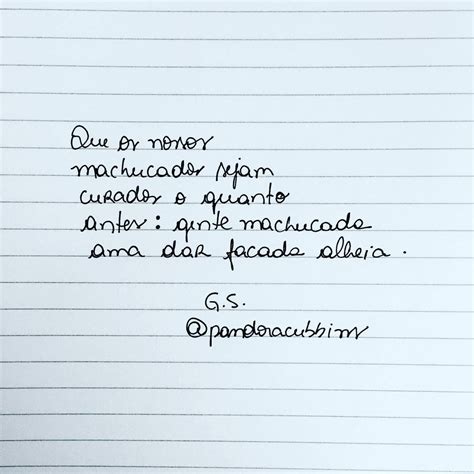 Que os nossos
machucados sejam
curados o quanto
antes: gente machucada
ama dar facada alheia.
G.S.
@pandoracubbins